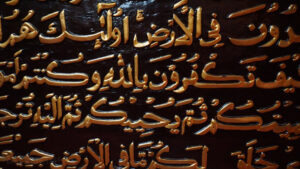 دون في الأرض أولئك هم
يف تكفرون بالله وكنتم
يتكم ثم يحييكم ثم إليه ترجع
خلق لكم ما في الأرض جميعا